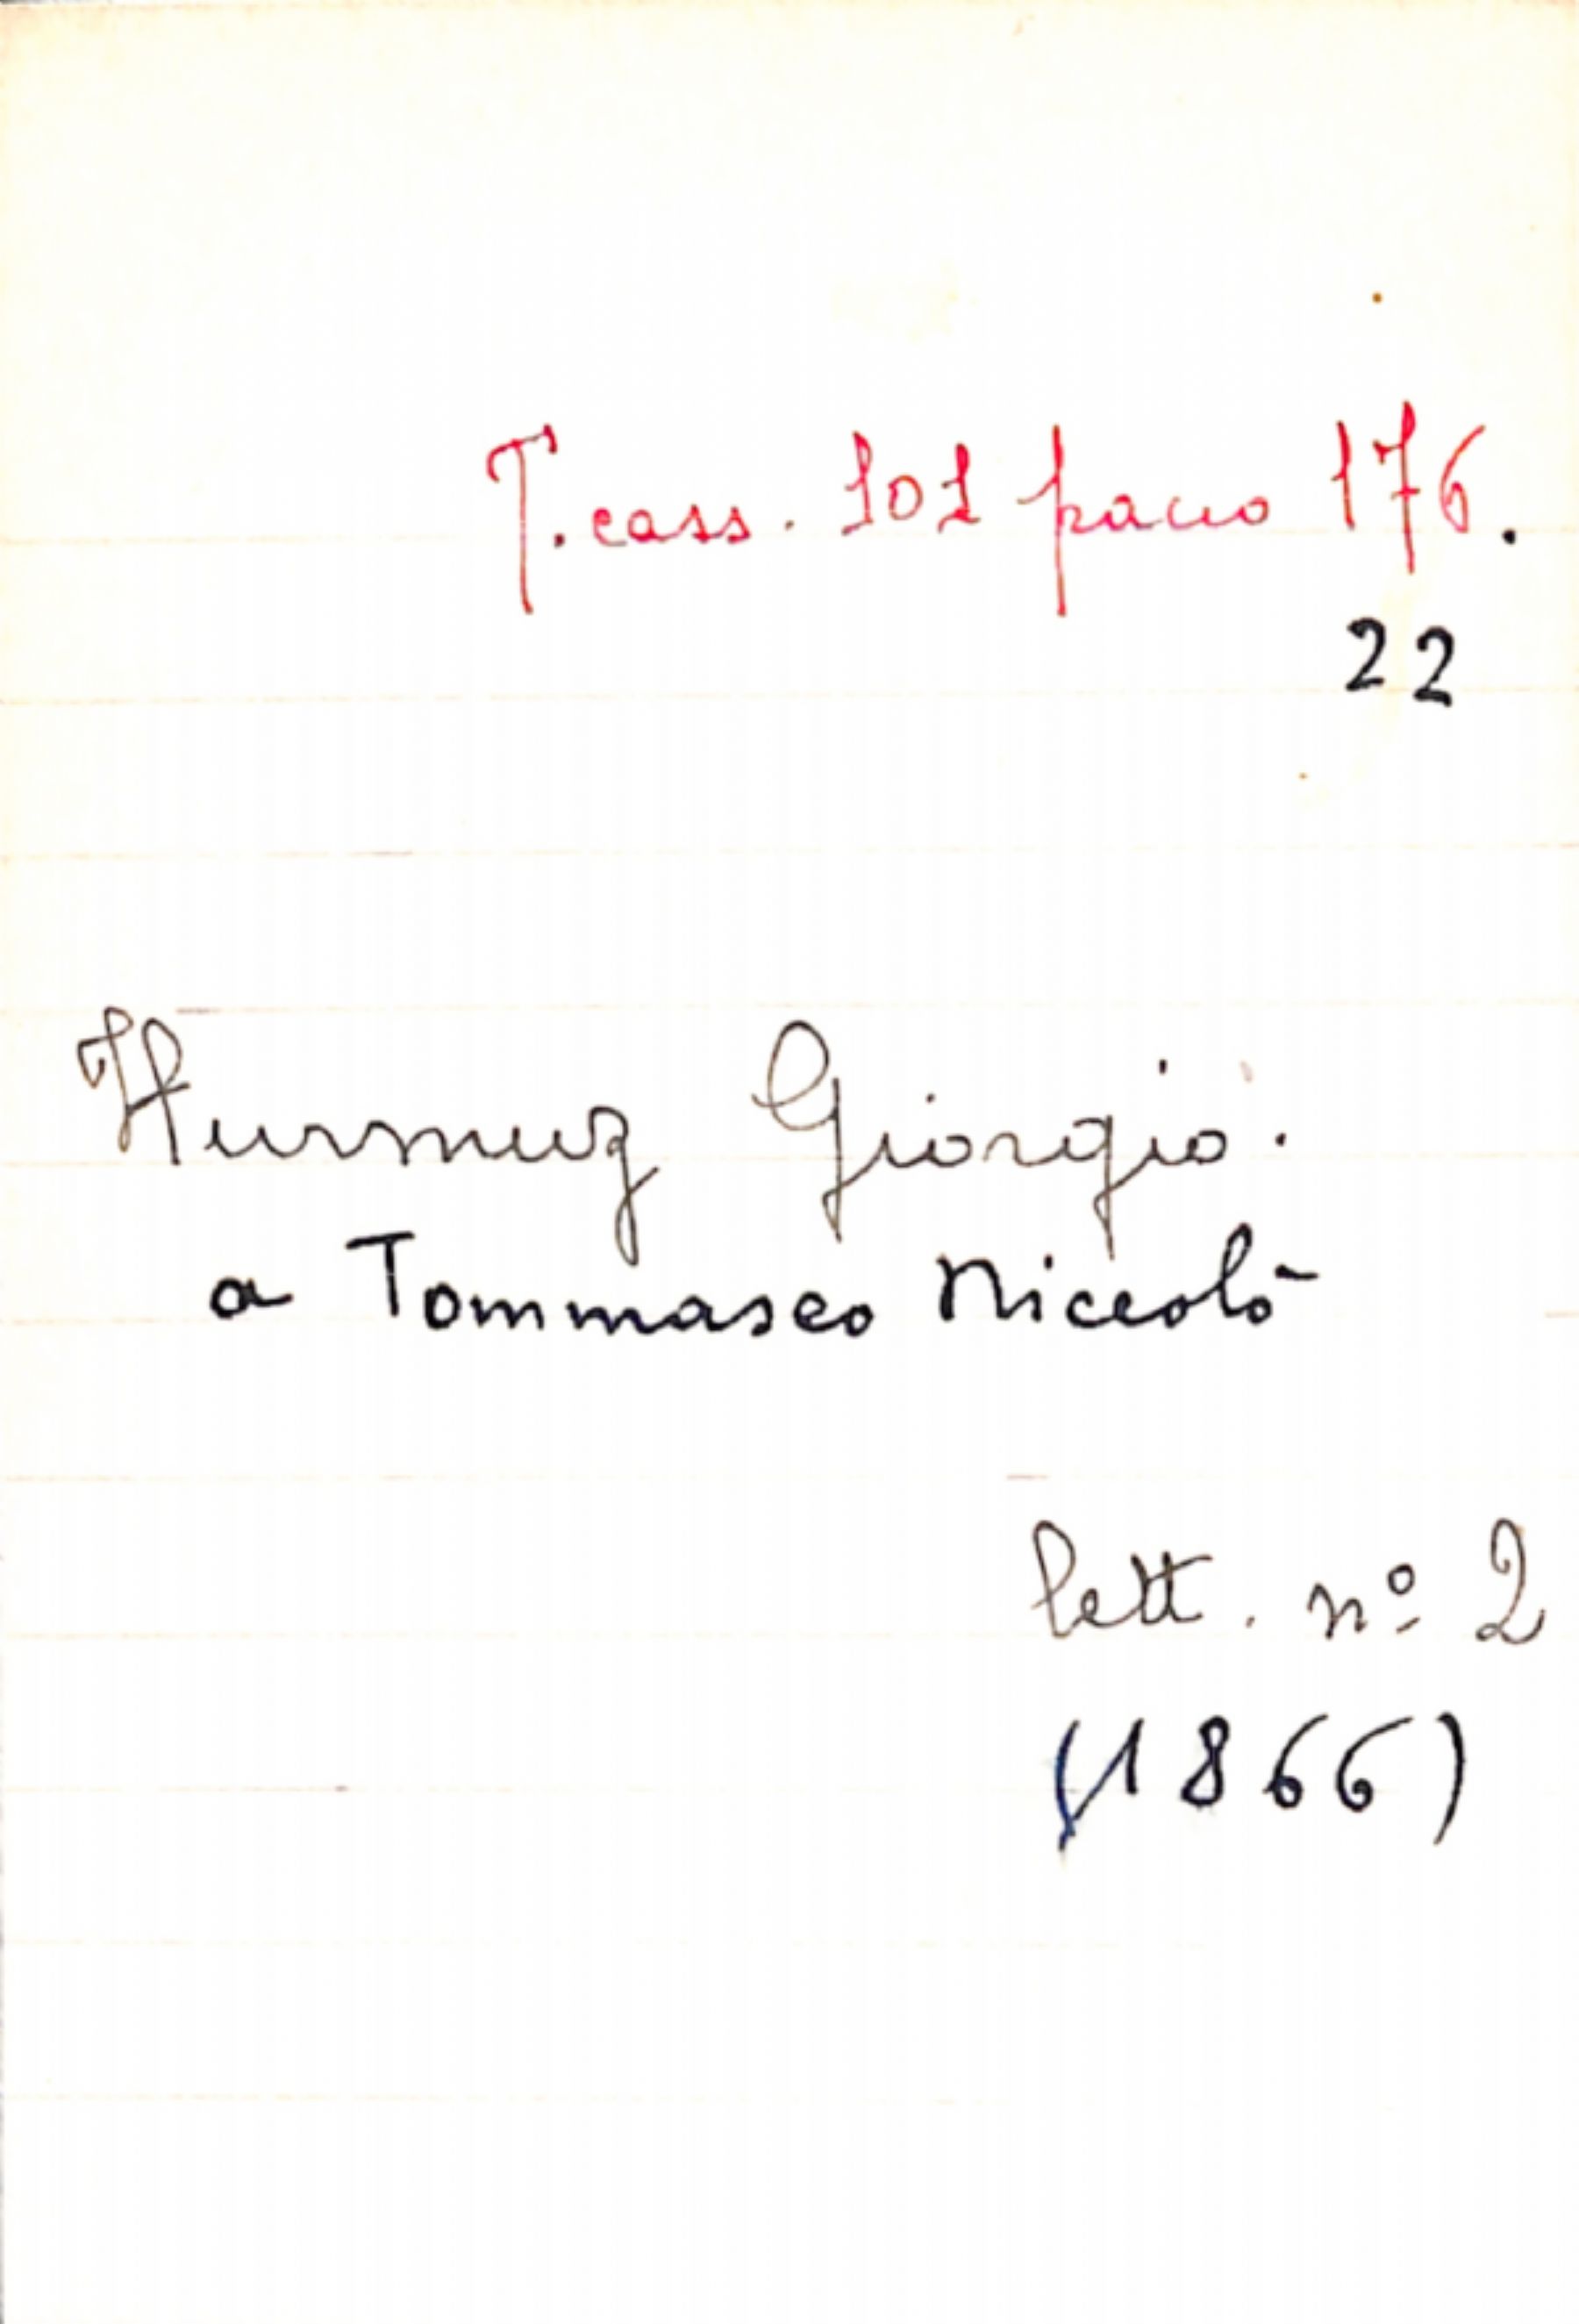 T. cass. 101 pacco 176.
22
Hurmuz Giorgio.
a Tommaseo Niccolò
lett. nº 2
(1866)